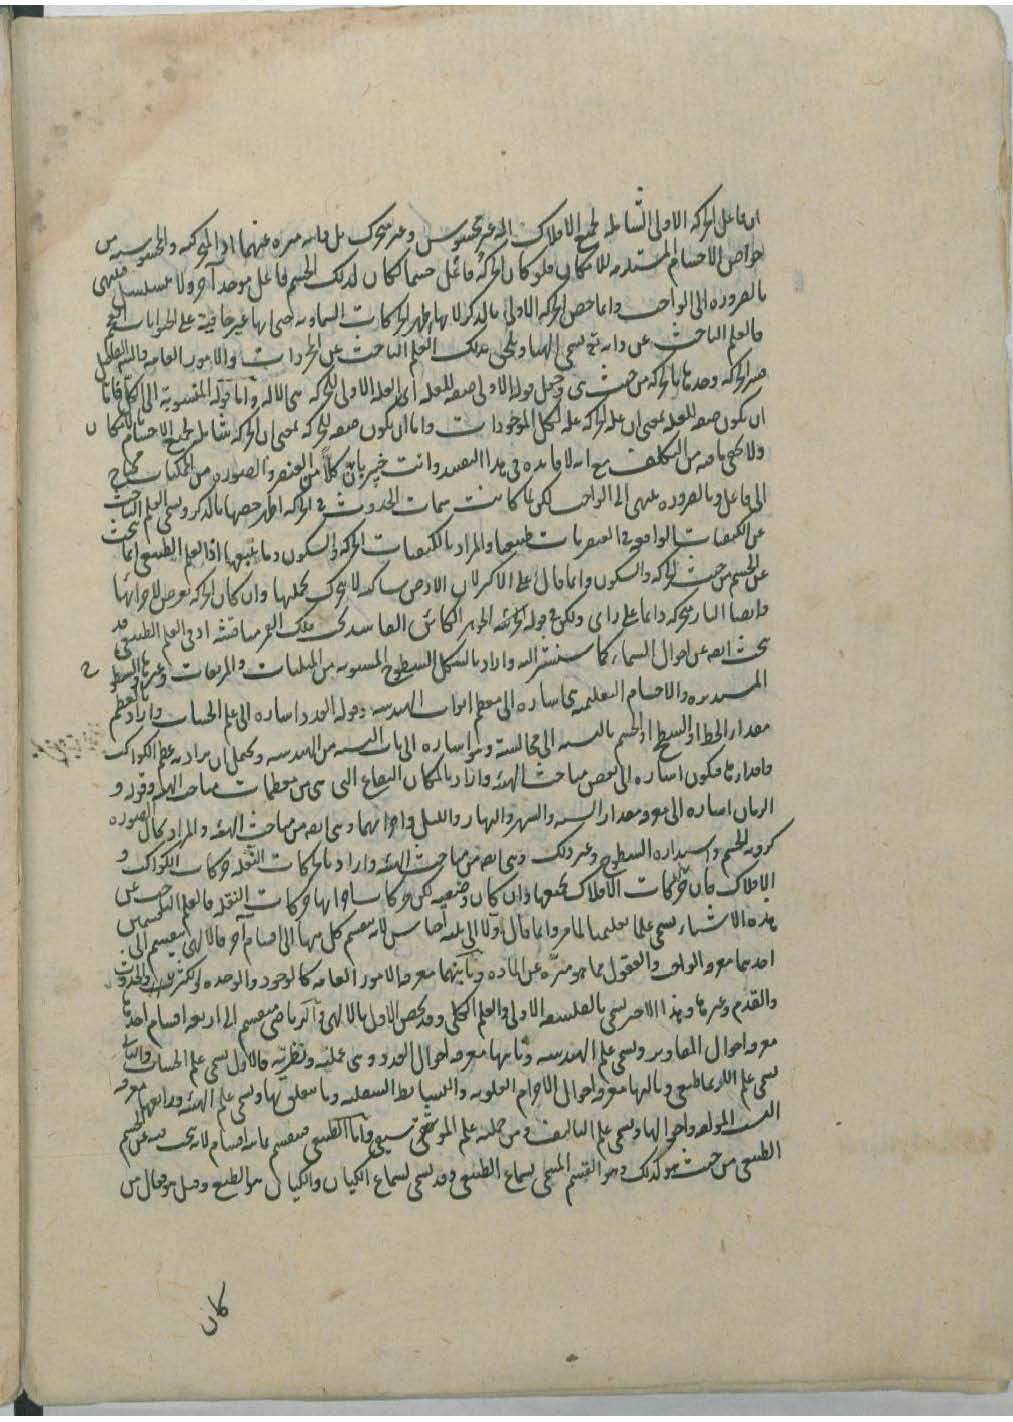 ان فاعل الحركة الاولى الشاملة لجميع الافلاك الخ غير محسوس وغير متحرك بل ذاته منزه عنهما اذ المتحركية والمحسوسية من
خواص الاجسام المستلزمة للامكان فلو كان الحركة فاعل جسما لكان لذلك الجسم فاعل موجد آخر ولا يتسلسل فينتهي
بالضرورة الى الواجب وانما خص الحركة الاولى بالذكر لانها اظهر الحركات السماوية حتى انها غير خافية على الحيوانات العجم
فالعلم الباحث عن ذاته تع يسمى الهيا ويلحق بذلك العلم الباحث عن المجردات والامور العامة
الحركة وحدها بالحركة من حيث هي وجعل قوله الاولى صفة للعلة اي العلة الاولى للحركة هي الاله واما قوله المنسوبة الى الكل فاما
ان يكون صفة للعلة بمعنى ان علة الحركة علة لكل الموجودات واما ان يكون صفة للحركة بمعنى ان الحركة شاملة لجميع الاجسام بالامكان
ولا يخفى ما فيه من التكلف مع انه لا فائدة في هذا التعميد وانت خبير بان كلا من العنصر والصورة من الممكنات محتاج
الى فاعل وبالضرورة ينتهي الى الواجب لكن لما كانت سمات الحدوث في الحركة اظهر خصها بالذكر ويسمى العلم الباحث
عن الكيفيات الواقعة في العنصريات طبيعيا والمراد بالكيفيات الحركة والسكون وما يتبعها اذ العلم الطبيعي انما يبحث
عن الجسم من حيث الحركة والسكون وانما قال على الاكثر لان الارض ساكنة لا يتحرك بكليتها وان كان الحركة تعرض لاجزائها
وايضا النار متحركة دائما على راي ولكن في قوله الجوهر الكائن الفاسد فلك القمر مناقشة اذ في العلم الطبيعي قد
يبحث ايضا عن احوال السماء كما سنشير اليه واراد بالشكل السطوح المستوية من المثلثات والمربعات وغيرها والسطوح
المستديرة والاجسام التعليمية اشارة الى معظم ابواب الهندسة وقوله العدد اشارة الى علم الحساب واراد بالعظم
مقدار الخط او السطح او الجسم بالنسبة الى مجانسه وهو اشارة الى باب النسبة من الهندسة ويحتمل ان مراده عظم الكواكب
ومقدارها فيكون اشارة الى بعض مباحث الهيئة واراد بالمكان البقاع التي هي من معظمات مباحث الهيئة وقوله و
الزمان اشارة الى معرفة مقدار السنة والشهر والنهار والليل واجزائهما وهي ايضا من مباحث الهيئة والمراد بكمال الصورة
كروية الجسم واستدارة السطوح وغير ذلك وهي ايضا من مباحث الهيئة واراد بالحركات النقلة حركات الكواكب و
الافلاك فان حركات الافلاك بجميعها وان كان وضعية لكن حركات ساير اجزائها حركات النقلة فالعلم الباحث عن
هذه الاشياء يسمى علما تعليميا لما مر وانما قال اولا الى ثلثة اجناس لانه ينقسم كل منها الى اقسام آخر فالالهي ينقسم الى قسمين
احدهما معرفة الواجب والعقول مما هو منزه عن المادة وثانيهما معرفة الامور العامة كالوجود والوحدة والكثرة والحدوث
والقدم وغيرها وهذا الاخير يسمى بالفلسفة الاولى والعلم الكلي وقد يخص الاول بالالهي والرياضي ينقسم الى اربعة اقسام احدها
معرفة احوال المقادير ويسمى علم الهندسة وثانيها معرفة احوال العدد وهي عملية ونظرية فالاول يسمى علم الحساب والثاني
يسمى علم الارثماطيقي وثالثها معرفة احوال الاجرام العلوية والبسايط السفلية وما يتعلق بها ويسمى علم الهيئة ورابعها معرفة
النسب المؤلفة واحوالها ويسمى علم التاليف ومن جملته علم الموسيقي واما الطبيعي فينقسم ثمانية اقسام لانه يبحث فيه عن الجسم
الطبيعي من حيث هو كذلك وهو القسم المسمى بسماع الطبيعي وقد يسمى بسماع الكيان والكيان هو الطبيع وقيل هو فعال من
كان